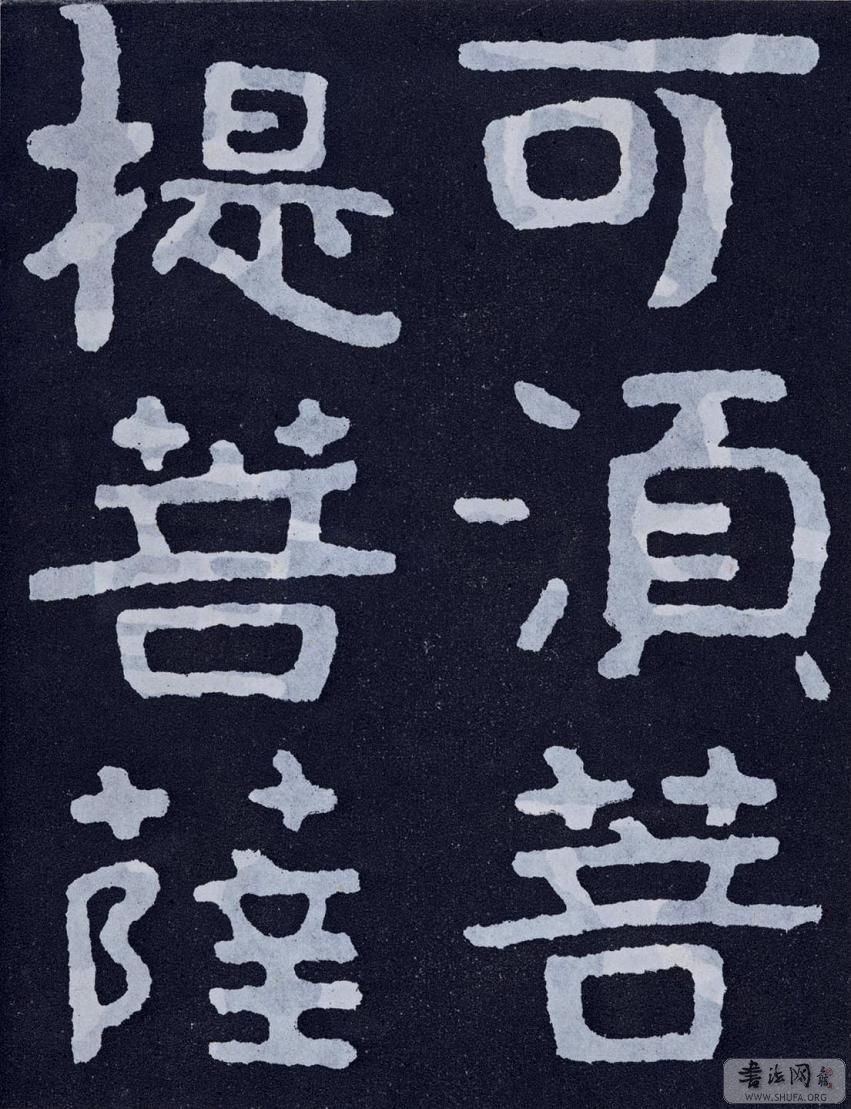 可須菩
提菩薩
書法网
WWW.SHUFA.ORG